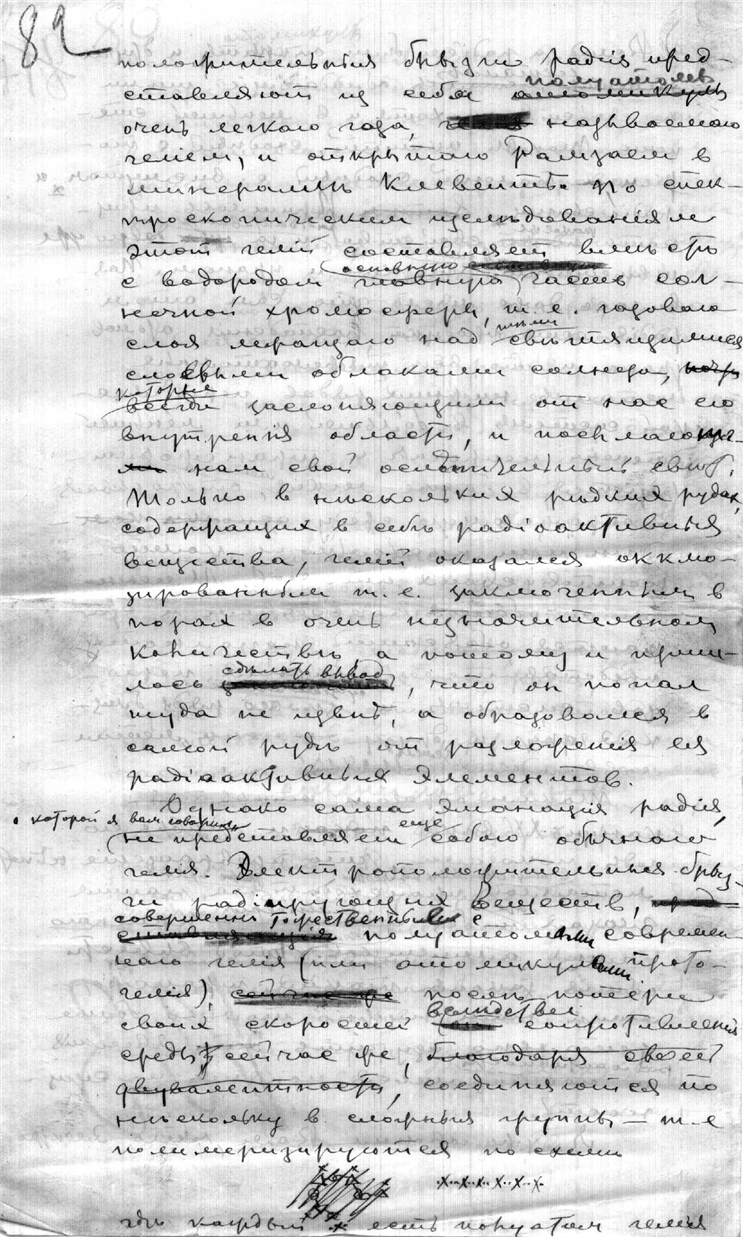 82
положительныя брызги радія пред-
полуатомъ
ставляютъ из себя атомикулъ
очень легкаго газа, называемаго
геліем, и открытаго Рамзаем в
минералѣ Клевеитѣ. По спек-
троскопическим изслѣдованіям
этот гелій составляет вмѣстѣ
основную
с водородом главную часть сол-
нечной хромосферы, т. е. газоваго
тѣми
слоя лежащаго над свѣтящимися
облаками солнца,
которые
всегда заслоняющими от нас его
внутренія области, и посылающе
нам свой ослѣпительный свѣт.
Только в нѣсколких рѣдких рудах,
содержащих в себѣ радіоактивныя
вещества, гелій оказался оккло-
зированным т. е. заключенным в
порах в очень незначительном
количествѣ а потому и приш-
сдѣлать вывод
лось , что он попал
туда не извнѣ, а образовался в
самой рудѣ от разложенія ея
радіоактивных элементов.
Однако сама эманація радія,
которой я вам говорил
еще
не представляет собою обычнаго
гелія. Электроположительныя брыз-
ги радіирующих веществ,
совершенно тожественныя с
полуатомами современ-
наго гелія (или атомикулами прото-
гелія), послѣ потери
вслѣдствіе
своих скоростей сопротивленія
среды сейчас же, благодаря своей
двувалентности, соединяются по
нѣскольку в сложныя группы — т. е
полимеризируются по схемѣ
х..х..х..х..х..х..
гдѣ каждый х есть полуатом гелія